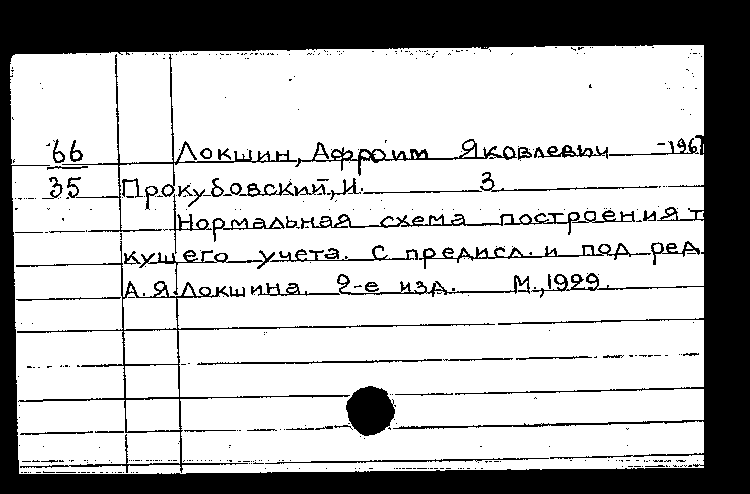 66 Локшин, Афроим Яковлевич -1967
35 Прокубовский, И. 3
Нормальная схема построения т
кущего учета. С предисл. и под ред
А.Я.Локшина. 2-е изд. М., 1929.